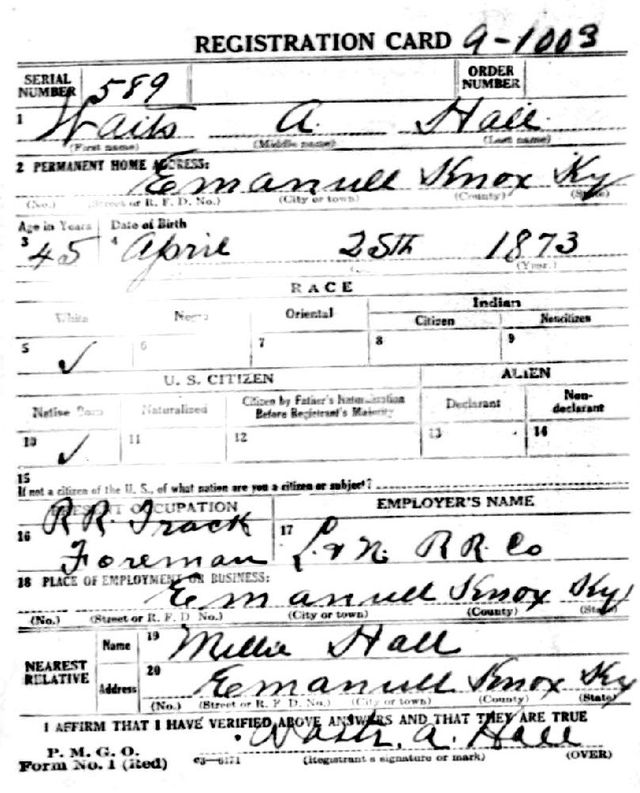 REGISTRATION CARD 9-1003
SERIAL NUMBER 589 ORDER NUMBER
1 Waits A. Hall
(First name) (Middle name) (Last name)
2 PERMANENT HOME ADDRESS:
Emanuell Knox Ky
(No.) (Street or R. F. D. No.) (City or town) (County) (State)
Age in Years Date of Birth
3 45 4 April 25th 1873
(Year.)
RACE
White Negro Oriental Indian
Citizen Noncitizen
5 ✓ 6 7 8 9
U. S. CITIZEN ALIEN
Native Born Naturalized Citizen by Father's Naturalization Before Registrant's Majority Declarant Non-declarant
10 ✓ 11 12 13 14
15
If not a citizen of the U. S., of what nation are you a citizen or subject?
PRESENT OCCUPATION EMPLOYER'S NAME
16 R.R. Track 17
Foreman L & N. R.R. Co
18 PLACE OF EMPLOYMENT OR BUSINESS:
Emanuell Knox Ky
(No.) (Street or R. F. D. No.) (City or town) (County) (State)
NEAREST RELATIVE Name 19 Millie Hall
Address 20 Emanuell Knox Ky
(No.) (Street or R. F. D. No.) (City or town) (County) (State)
I AFFIRM THAT I HAVE VERIFIED ABOVE ANSWERS AND THAT THEY ARE TRUE
A. Hall
P. M. G. O.
Form No. 1 (Red) c3-6171 (Registrant's signature or mark) (OVER)